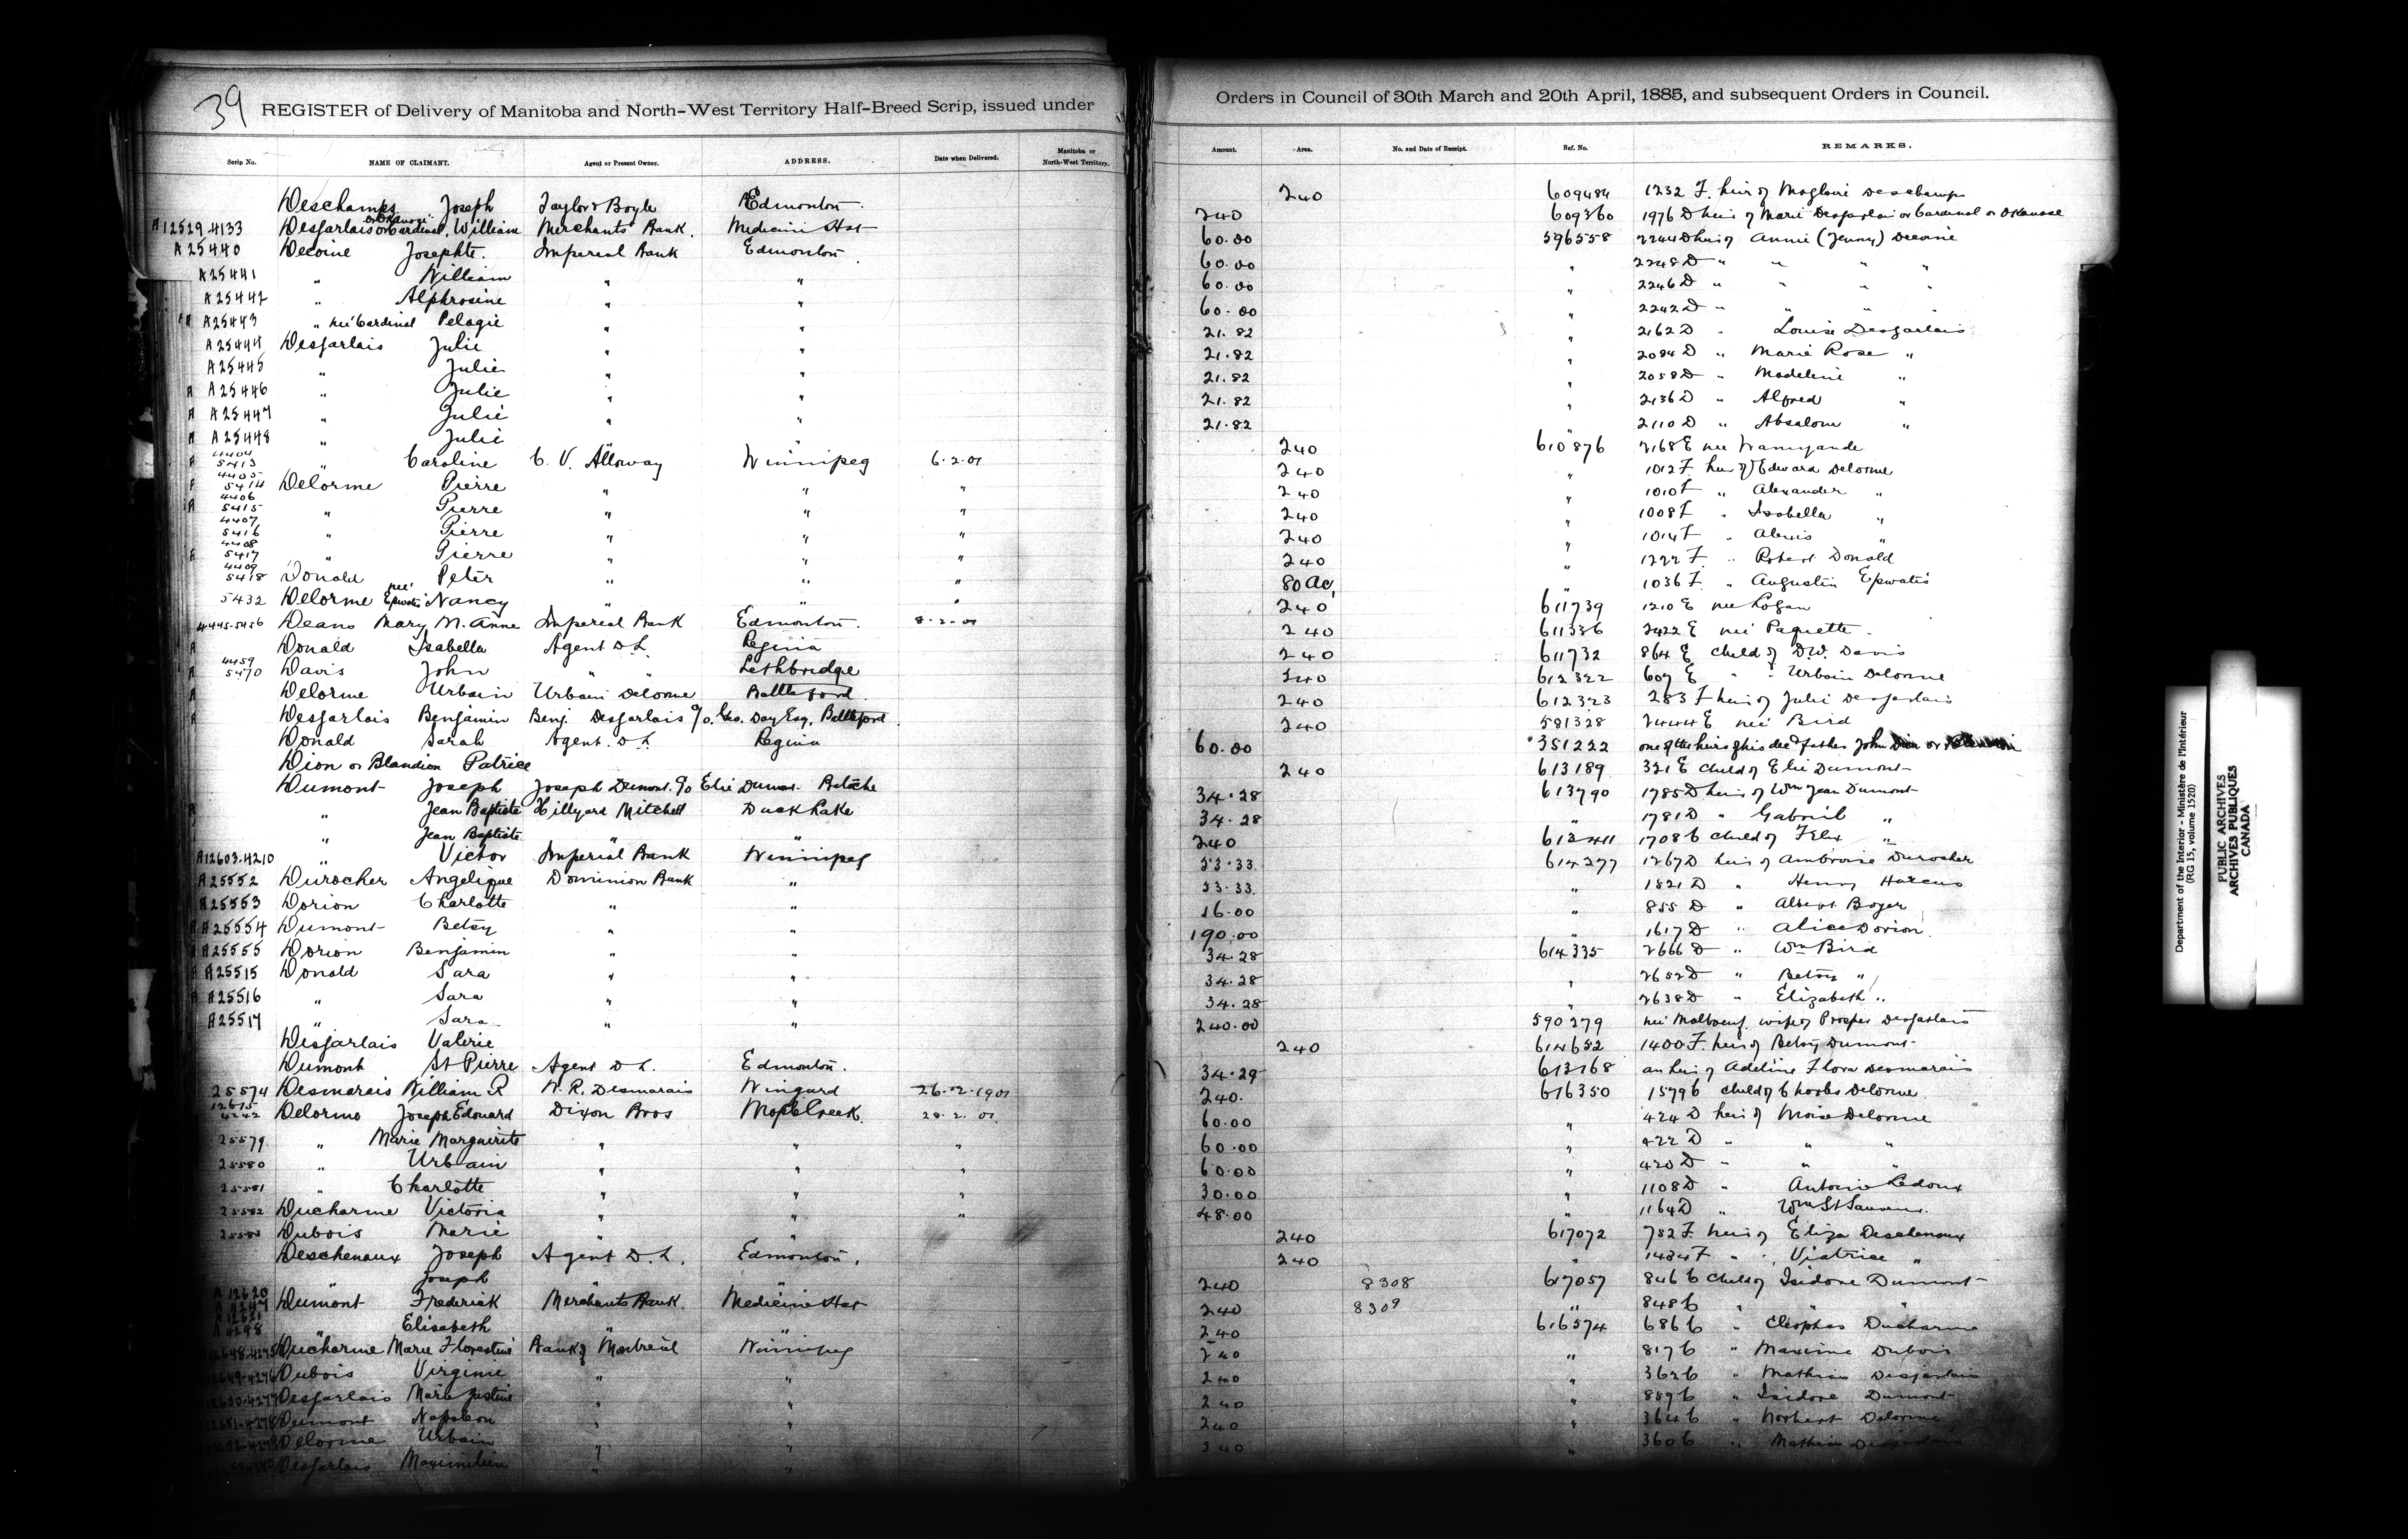 39 REGISTER of Delivery of Manitoba and North-West Territory Half-Breed Scrip, issued under Orders in Council of 30th March and 20th April, 1885, and subsequent Orders in Council.
Scrip No. NAME OF CLAIMANT. Agent or Present Owner. ADDRESS. Date when Delivered. Manitoba or North-West Territory. Amount. Area. No. and Date of Receipt. Ref. No. REMARKS.
Deschamps Joseph Taylor & Boyle Edmonton. 240 609484 1232 F. heir of Magloire Deschamps
A12529.4133 Desjarlais or Cardinal, or Okanase William Merchants Bank. Medicine Hat 240 609360 1976 D heir of Marie Desjarlais or Cardinal or Okanase
A25440 Decoine Josephte. Imperial Bank Edmonton. 60.00 596558 2244 D heir of Annie (Jenny) Decoine
A25441 " William " " 60.00 " 2248 D " " " "
A25442 " Alphrosine " " 60.00 " 2246 D " " " "
A25443 " neé Cardinal Pelagie " " 60.00 " 2242 D " " " "
A25444 Desjarlais Julie " " 21.82 " 2162 D " Louise Desjarlais
A25445 " Julie " " 21.82 " 2084 D " Marie Rose "
A25446 " Julie " " 21.82 " 2058 D " Madeline "
A25447 " Julie " " 21.82 " 2136 D " Alfred "
A25448 " Julie " " 21.82 " 2110 D " Absalom "
4404 5413 " Caroline C. V. Alloway Winnipeg 6.2.01 240 610876 2168 E neé
4405 5414 Delorme Pierre " " " 240 " 1012 F. heir of Edward Delorme
4406 5415 " Pierre " " " 240 " 1010 F " Alexander "
4407 5416 " Pierre " " " 240 " 1008 F " Isabella "
4408 5417 " Pierre " " " 240 " 1014 F " Alexis "
4409 5418 Donald Peter " " " 240 " 1222 F. " Robert Donald
5432 Delorme neé Epwatis Nancy " " " 80 ac, " 1036 F. " Augustin Epwatis
4445-5456 Deans Mary M. Anne Imperial Bank Edmonton. 8.2.01 240 611739 1210 E neé Logan
Donald Isabella Agent D.L. Regina 240 611336 2422 E neé Paquette.
4459 5470 Davis John " Lethbridge 240 611732 864 E child of D.W. Davis
Delorme Urbain Urbain Delorme Battleford. 240 612322 607 E " " Urbain Delorme
Desjarlais Benjamin Benj. Desjarlais c/o. Geo. Day Esq. Battleford. 240 612323 283 F heir of Julie Desjarlais
Donald Sarah Agent. D.L. Regina 240 581328 2444 E neé Bird
Dion or Blandion Patrice 60.00 351222 one of the heirs of his decd father John Dion or
Dumont Joseph Joseph Dumont. c/o Elie Dumont. Batoche 240 613189 321 E child of Elie Dumont
" Jean Baptiste Hillyard Mitchell Duck Lake 34.28 613790 1785 D heir of Wm Jean Dumont
" Jean Baptiste " " 34.28 " 1781 D " Gabriel "
A12603.4210 " Victor Imperial Bank Winnipeg 240 613411 1708 C child of Felix "
A25552 Durocher Angelique Dominion Bank " 53.33. 614277 1267 D heir of Ambroise Durocher
A25553 Dorion Charlotte " " 53.33. " 1821 D " Henry Harcus
A25554 Dumont Betsy " " 16.00 " 855 D " Albert Boyer
A25555 Dorion Benjamin " " 190.00 " 1617 D " Alice Dorion.
A25515 Donald Sara " " 34.28 614335 2666 D " Wm Bird
A25516 " Sara " " 34.28 " 2652 D " Betsy "
A25517 " Sara " " 34.28 " 2638 D " Elizabeth "
Desjarlais Valerie 240.00 590279 neé Malboeuf, wife of Prosper Desjarlais
Dumont St Pierre Agent D.L. Edmonton. 240 614652 1400 F. heir of Betsy Dumont
25574 Desmarais William R W.R. Desmarais Wingard 26.2.1901 34.29 613168 an heir of Adeline Flora Desmarais
12615 4242 Delorme Joseph Edouard Dixon Bros Maple Creek. 28.2.01. 240. 616350 1579 C child of Chooks Delorme
25579 " Marie Marguerite " " " 60.00 " 424 D heir of Moise Delorme
25580 " Urbain " " " 60.00 " 422 D " " "
25581 " Charlotte " " 60.00 " 420 D " " "
25582 Ducharme Victoria " " " 30.00 " 1108 D " Antoine Ledoux
25583 Dubois Marie " " 48.00 " 1164 D " Wm St Sauveur.
Deschenaux Joseph Agent D.L. Edmonton. 240 617072 752 F. heir of Eliza Deschenaux
" Joseph " " 240 " 1434 F " " Victrice "
A12620 A4247 Dumont Frederick Merchants Bank. Medicine Hat 240 8308 617057 846 C child of Isidore Dumont
A12621 A4248 " Elisabeth " " 240 8309 " 848 C " " "
12648-4275 Ducharme Marie Florestine Bank of Montreal Winnipeg 240 616574 686 C " Cleophas Ducharme
12649-4276 Dubois Virginie " " 240 " 817 C " Maxime Dubois
12650-4277 Desjarlais Marie Justine " " 240 " 362 C " Mathias Desjarlais
12651-4278 Dumont Napoleon " " 240 " 859 C " Isidore Dumont
Delorme Urbain " " 240 " 364 C " Norbert Delorme
Desjarlais Maximilien " " 240 " 360 C " Mathias Desjarlais
Department of the Interior - Ministère de l'Intérieur
(RG 15, volume 1520)
PUBLIC ARCHIVES
ARCHIVES PUBLIQUES
CANADA